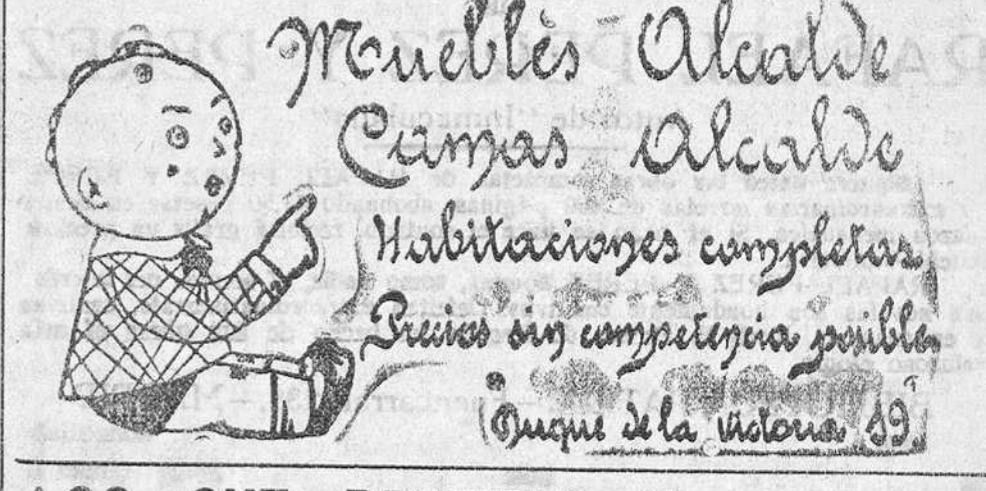 Muebles Alcalde
Camas Alcalde
Habitaciones completas
Precios sin competencia posible
Duque de la Victoria 19